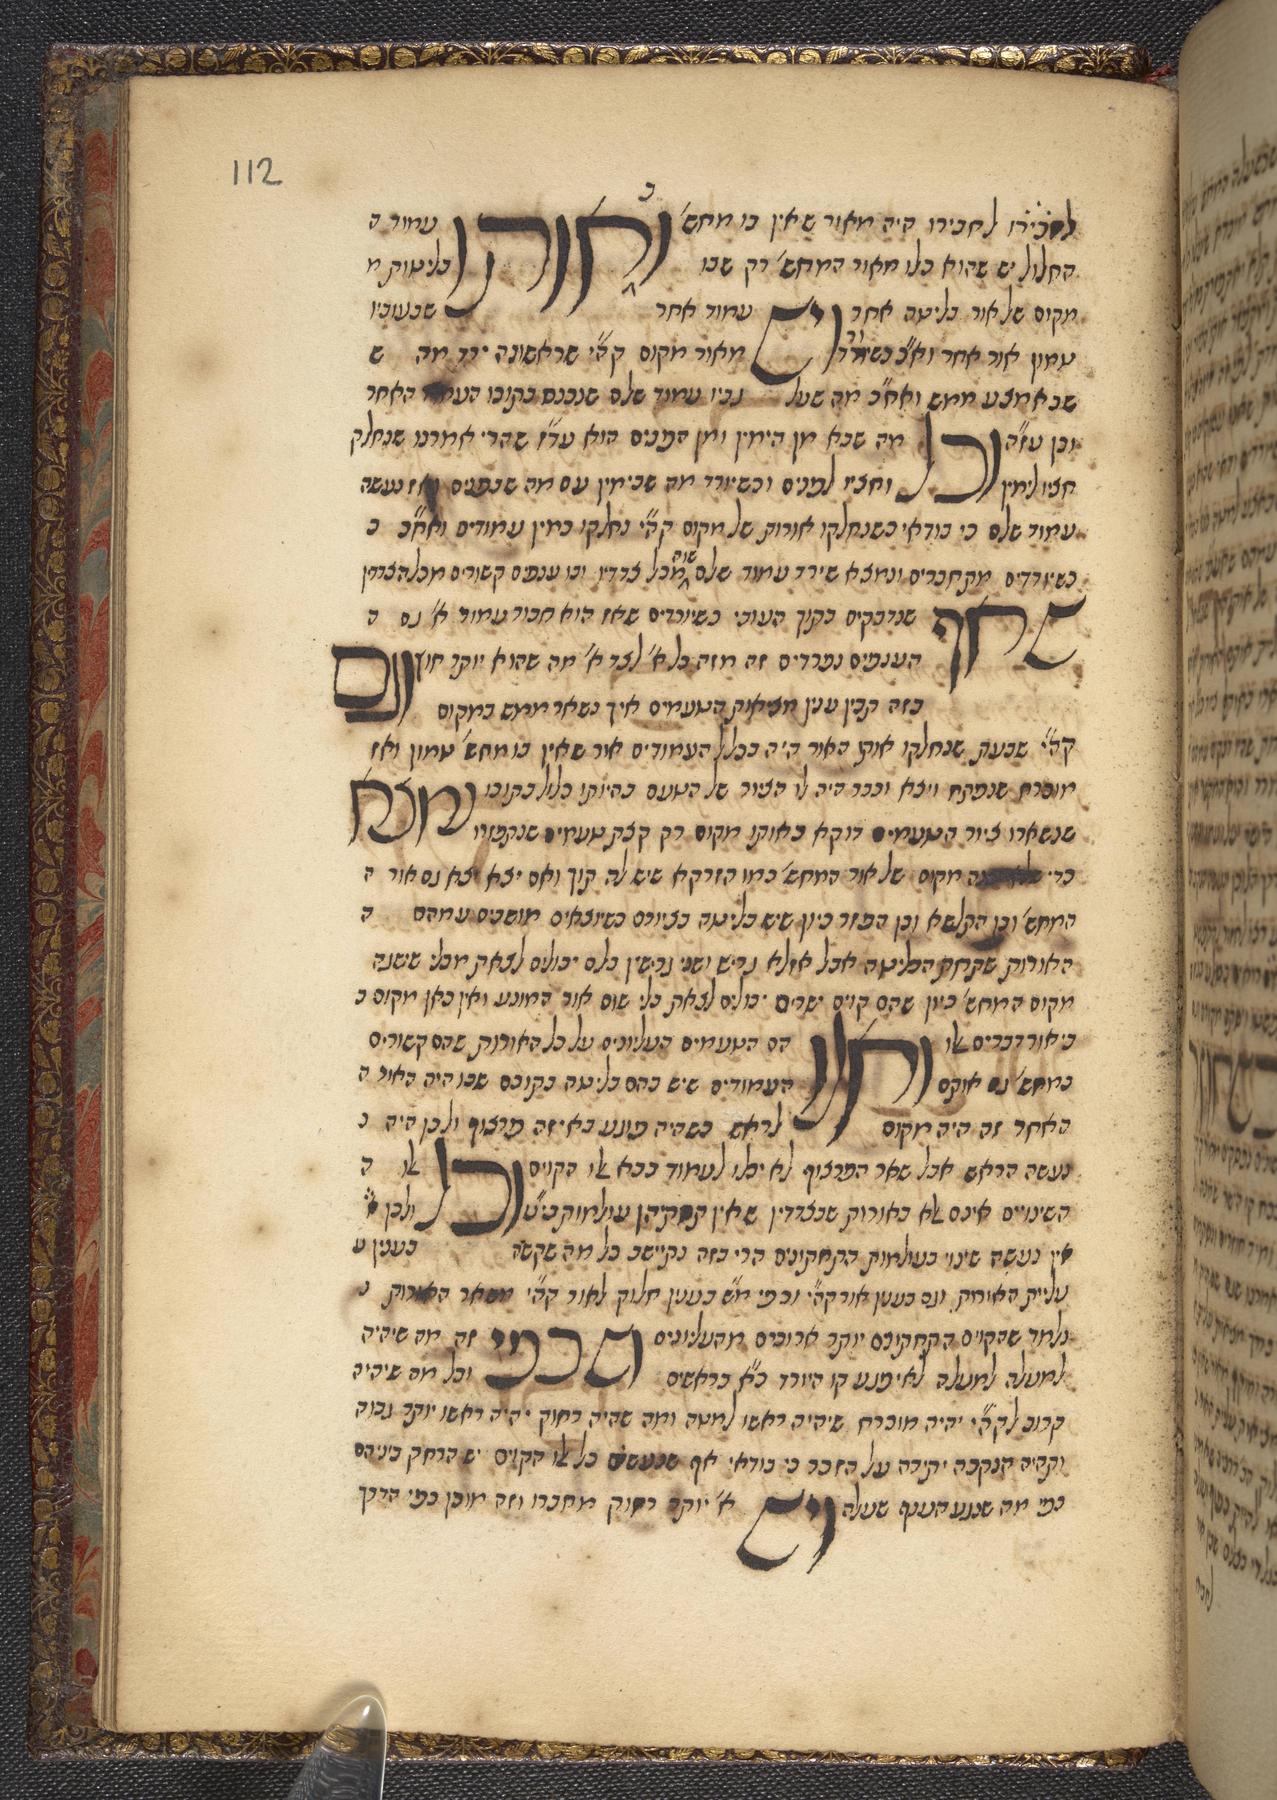 112
לחבירו היה מאור שאין בו מחש׳ וחורתו עמוד ה
החלול יש שהוא כלו מאור המחש׳ רק שבו בליטות מ
מקום של אור בליטה אחר וים עמוד אחר שבעוביו
טמון אור אחר ואח״כ מאור מקום קה״י שראשונה ירד מה ש
שבאמצע ממש ואח״כ מה שעל גביו עמוד שלם שנכנס בקובו האחר
וכן עז״ה וכל מה שבא מן הימין ומן הפנים הוא עד״ז שהרי אמרנו שנחלק
חציו לימין וחציו לפנים וכשיורד מה שבימין עם מה שבפנים ואז נעשה
עמוד שלם כי בודאי כשנחלקו אורות של מקום קה״י נחלקו כמין עמודים ואח״כ כ
כשיורדים מתחברים ונמצא שירד עמוד שלם מכל צדדיו ובו ענפים קשורים מכל הצדדין
שנדבקים בתוך העובי כשיורדים שאז הוא חבור עמוד א׳ גם ה
הענפים נפרדים זה מזה כל א׳ לצד א׳ מה שהוא יותר חוץ וגם
בזה תבין ענין מציאות הטעמים איך נשאר ממש במקום
קה״י שבעת שנחלקו אותו האור היה בכלל העמודים אור שאין בו מחש׳ טמון ואז
מוכרח שנפתח ויצא וכבר היה לו הציור של הטעם בהיותו כלול בתוכו
שנשארו ציור הטעמים דוקא באותו מקום רק קצת טעמים
כדי מקום של אור המחש׳ כמו הזרקא שיש לה קוך ואם יצא יצא גם אור ה
המחש׳ וכן התלשא וכן הפזר כיון שיש בליטה בציורם כשיוצאים מושכים עמהם ה
האורות שתחת הבליטה אבל אזלא גריש ושני גרישין כלם יכולים לצאת מבלי ששנה
מקום המחש׳ כיון שהם קוים ישרים יכולים לצאת בלי שום אור המונע ואין כאן מקום ב
ביאור דברים אלו הם הטעמים העליונים על כל האורות שהם קשורים
במחש׳ גם אותם העמודים שיש בהם בליטה בתוכם שבו היה האור ה
האחר זה היה מקום לראש כשהיה פוגע באיזה פרצוף ולכן היה נ
נעשה הראש אבל שאר הפרצוף לא יכלו לעמוד בבא אלו הקוים וכל אלו ה
השינויים אינם אלא באורות שבצדדין שאין עולמות ולכן
אין נעשה שינוי בעולמות התחתונים הרי בזה נתיישב כל מה שקשה בענין ע
עליית האורות וגם בענין אור קה״י וכפי מ״ש בענין חלוק לאור קה״י משאר האורות נ
נלמד שהקוים התחתונים יותר ארוכים מהעליונים שכפי זה מה שיהיה
למעלה למעלה לא יפגע קו היורד כ״א בראשים וכל מה שיהיה
קרוב לקה״י יהיה מוכרח שיהיה ראשו למטה ומה שהיה רחוק יהיה ראשו יותר גבוה
ותהיה הנקבה יתירה על הזכר כי בודאי אף שנעשים כל אלו הקוים יש הרחק ביניהם
כפי מה שנגע הענף שעלה וים א׳ יותר רחוק מחברו וזה מובן כפי הדרך